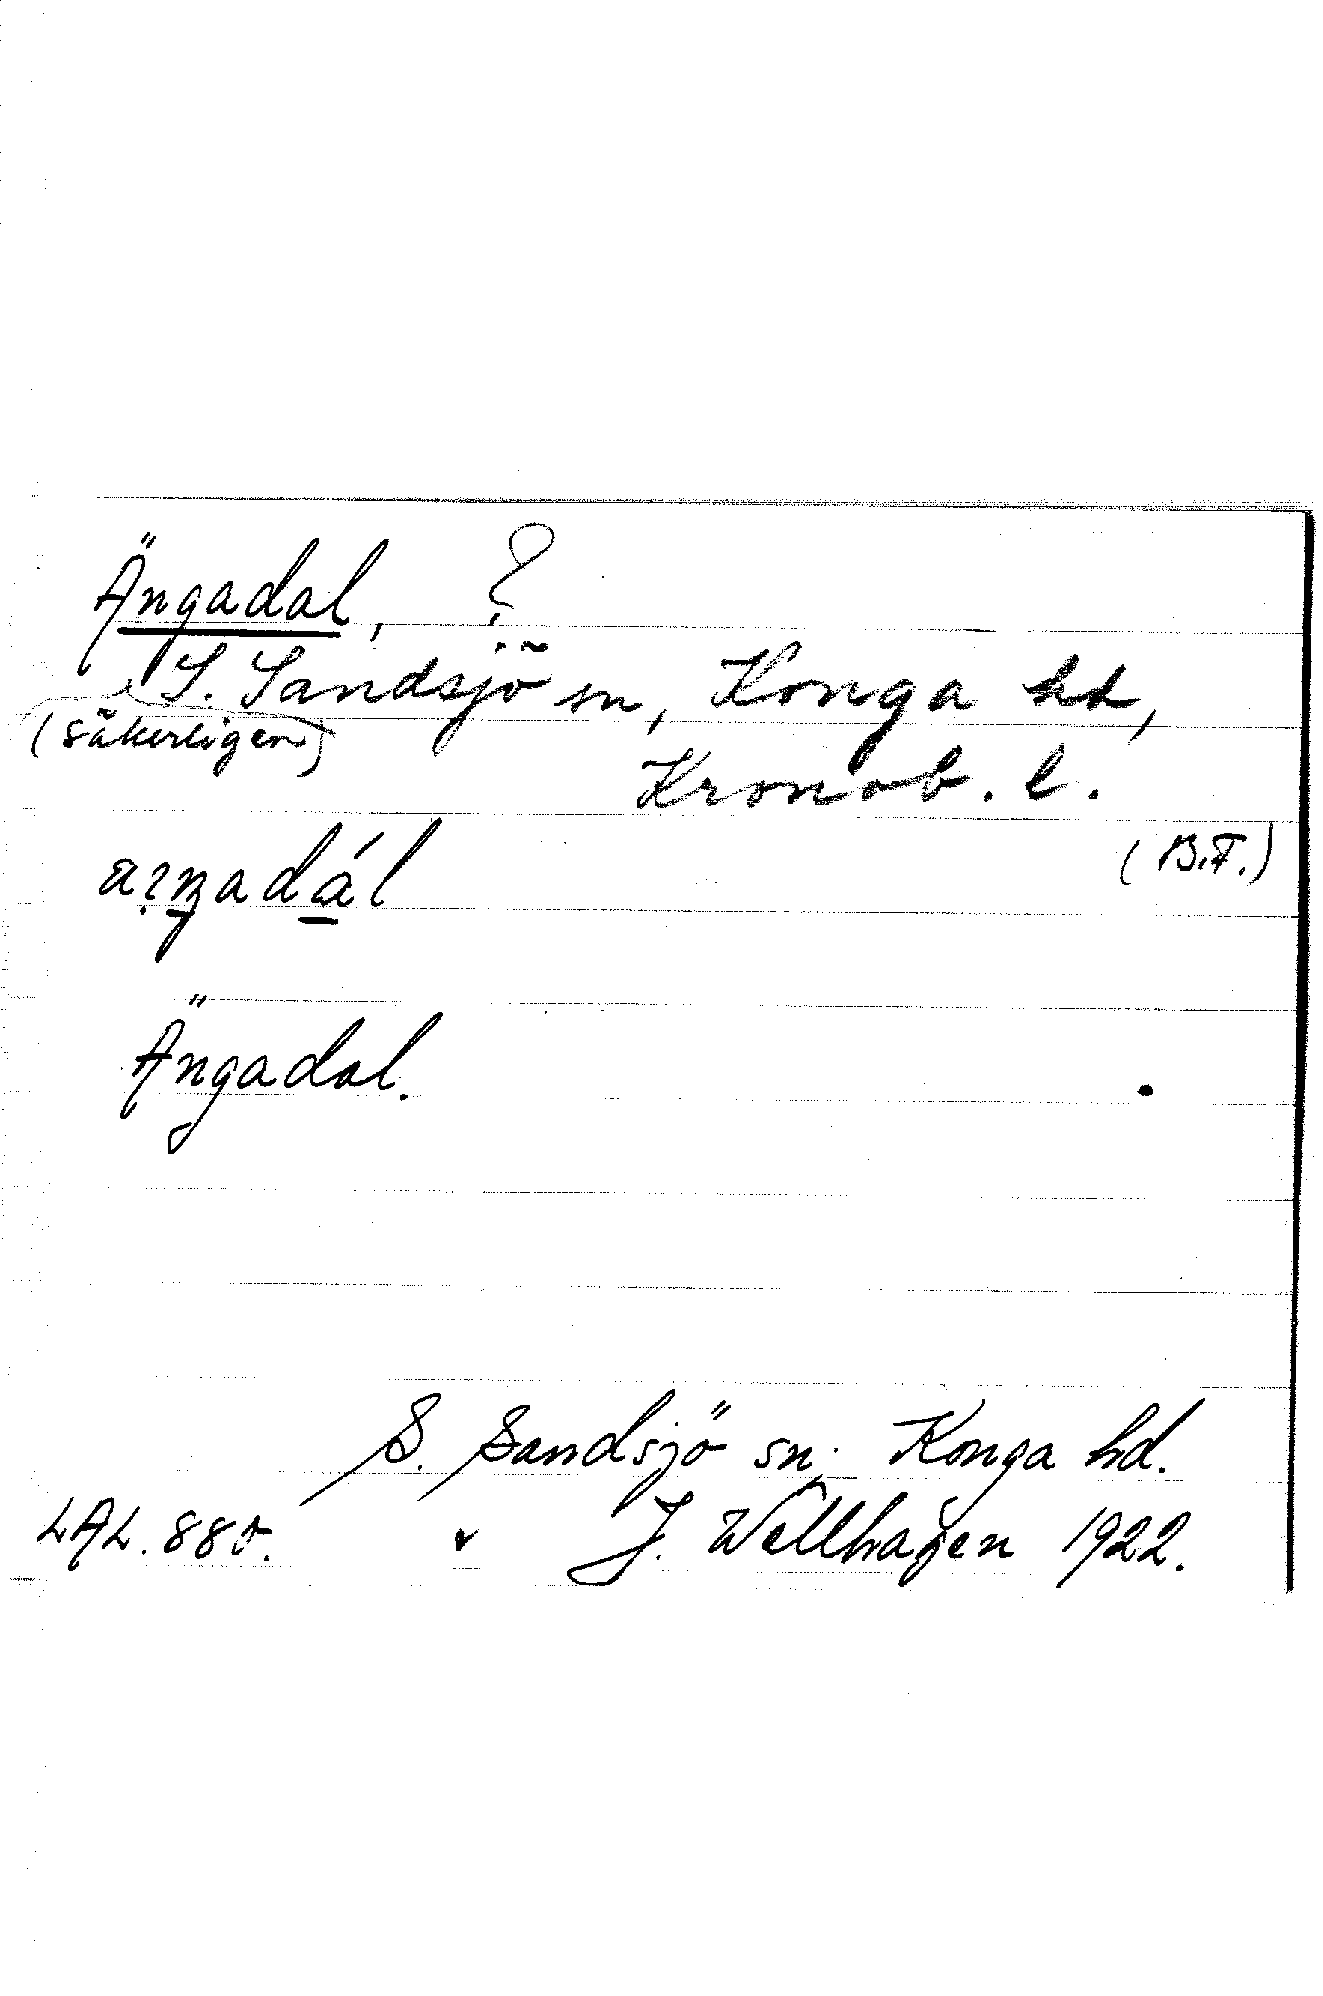 Ängadal, ?
S. Sandsjö sn, Konga hd,
(säkerligen)
Kronob. l.
(B.F.)
Ängadal.
S. Sandsjö sn. Konga hd.
LAL. 880. J. Wellhagen 1922.